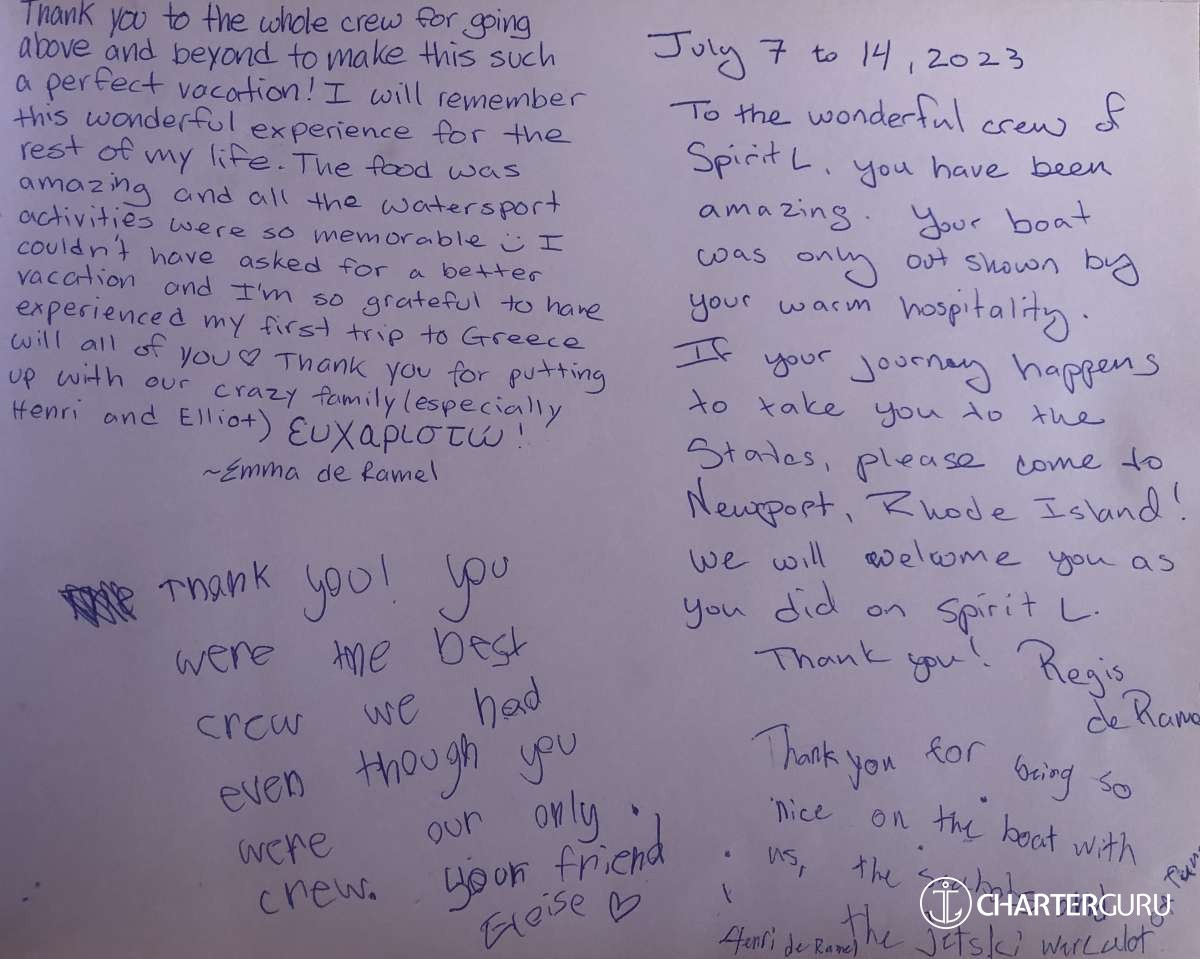 Thank you to the whole crew for going
above and beyond to make this such
a perfect vacation! I will remember
this wonderful experience for the
rest of my life. The food was
amazing and all the watersport
activities were so memorable :) I
couldn't have asked for a better
vacation and I'm so grateful to have
experienced my first trip to Greece
will all of you♡ Thank you for putting
up with our crazy family (especially
Henri and Elliot) ευχαριστώ!
~Emma de Ramel
Thank you! you
were the best
crew we had
even though you
were our only
crew. your friend
Eloise ♡
July 7 to 14, 2023
To the wonderful crew of
Spirit L, you have been
amazing. Your boat
was only out shown by
your warm hospitality.
If your journey happens
to take you to the
States, please come to
Newport, Rhode Island!
We will welcome you as
you did on Spirit L.
Thank you! Regis
de Rame
Thank you for being so
nice on the boat with
us, the
the jetski were alot
of fun
Henri de Ramel
CHARTERGURU